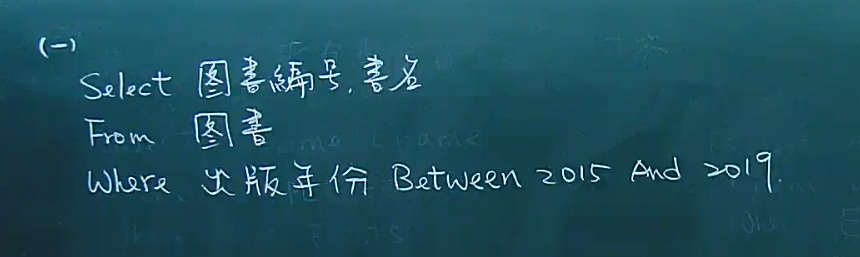 (一)
Select 图書編号,書名
From 图書
Where 出版年份 Between 2015 And 2019.